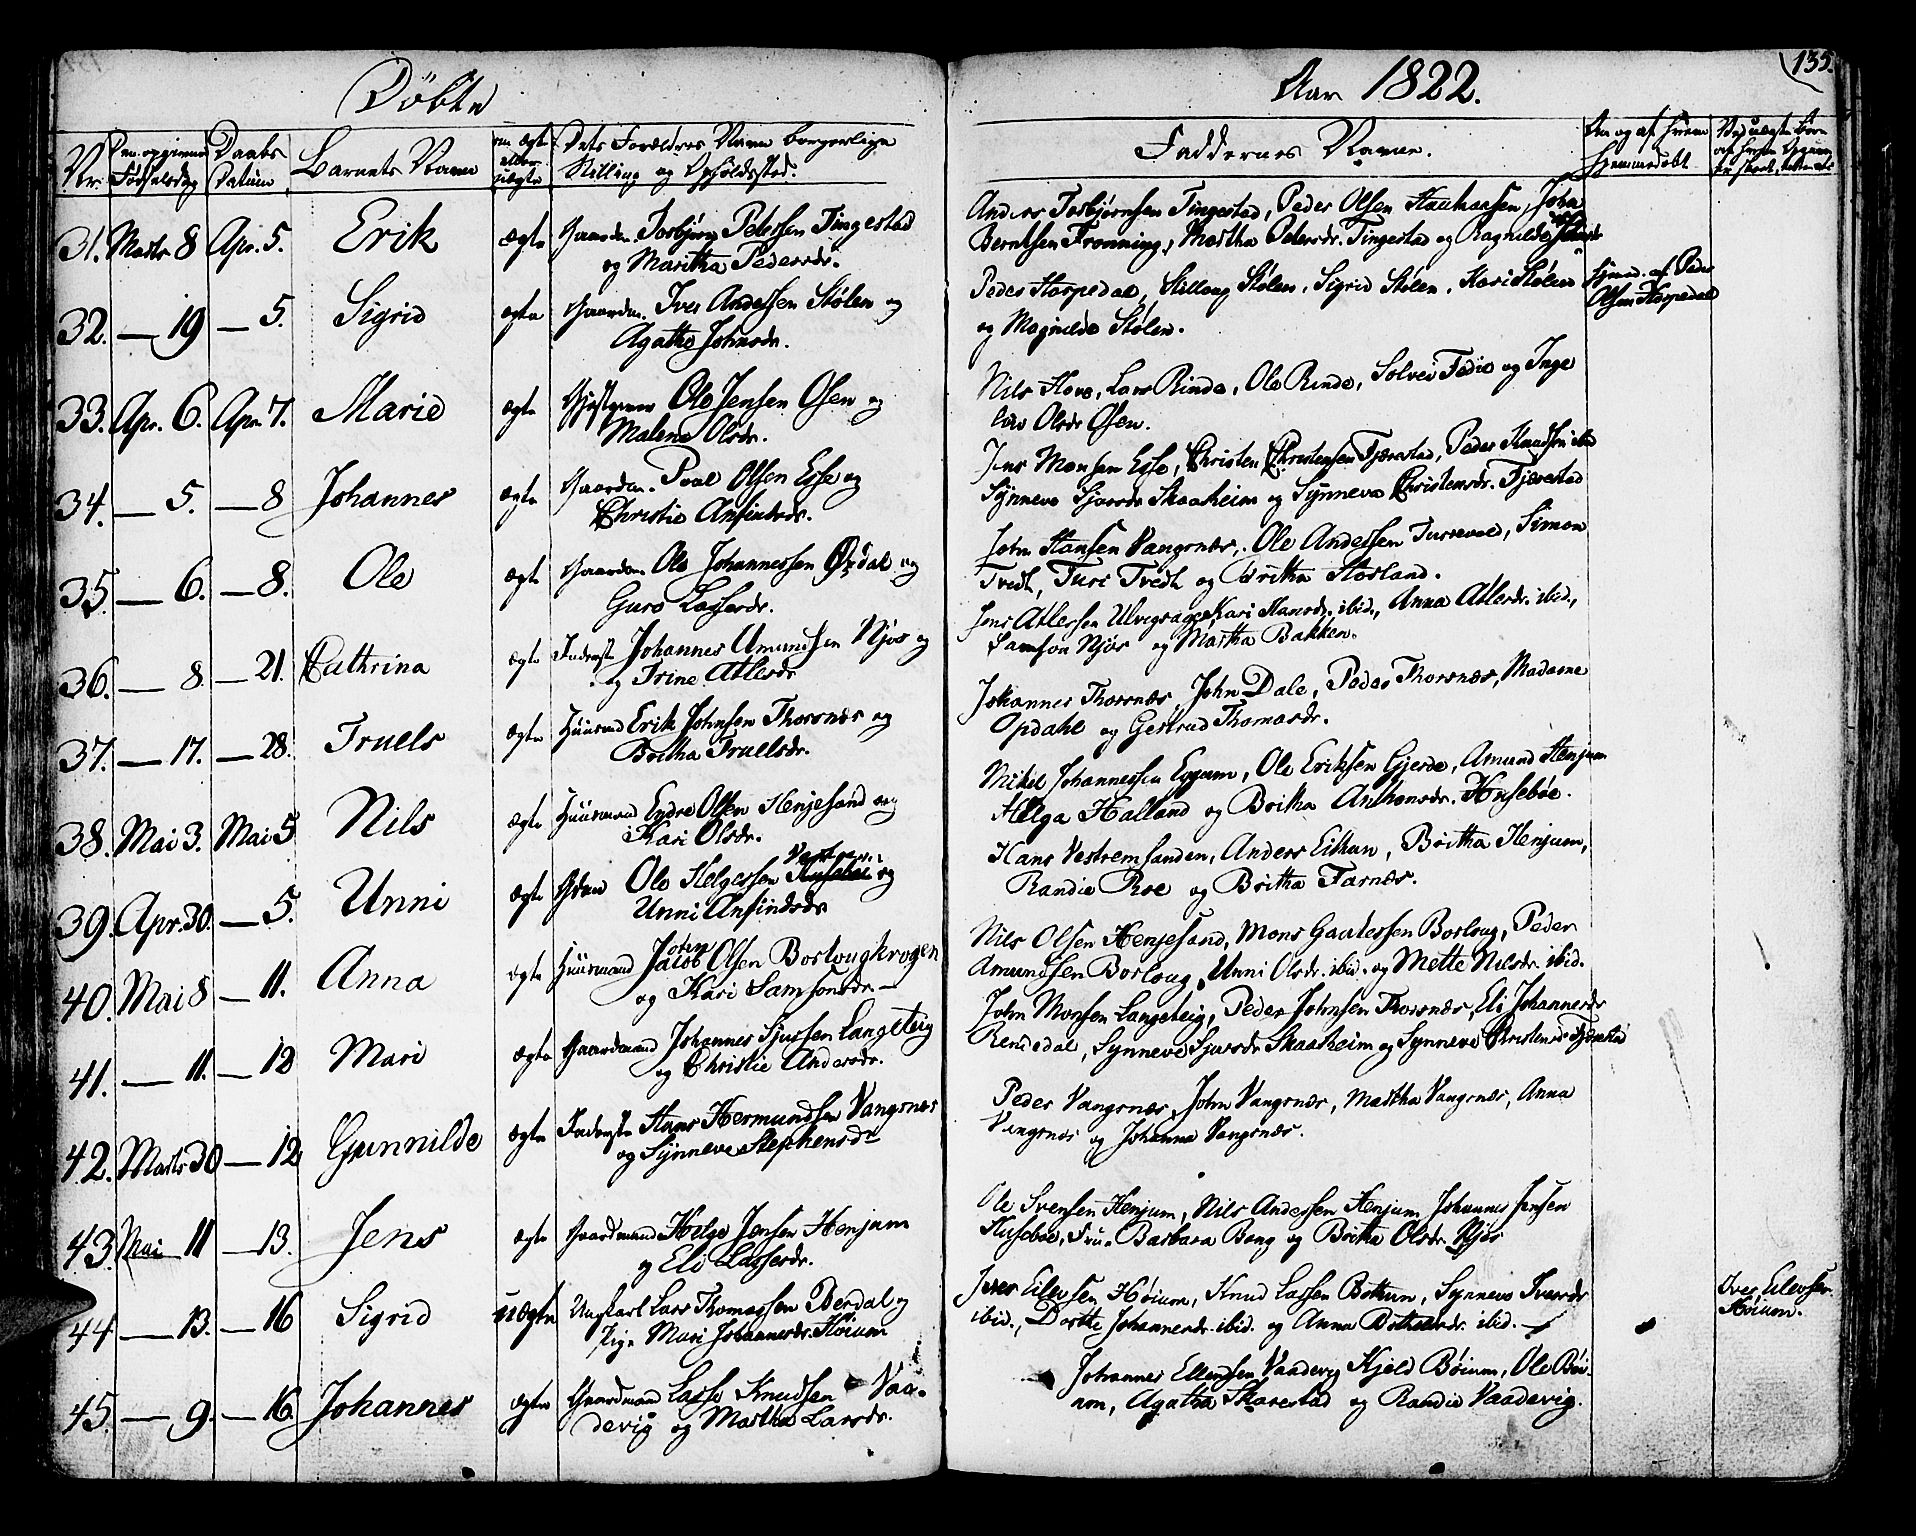 Döbte
Aar 1822.
135.
Nr.
Den opgivne Fødselsdag
Daabs Datum
Barnets Navn
om ægte eller uægte
Dets Forældres Navne borgerlige
Stilling og Opholdssted.
Faddernes Navne.
Om og af hvem hjemmedøbt
31. Marts 8 Apr. 5. Erik ægte Gaardm. Torbjørn Petersen Tingestad
og Maritha Pedersdr.
Anders Torbjørnsen Tingestad, Peder Olsen Stauhaesen, John
Berntsen Fronning, Martha Petersdr. Tingestad og Ragnilde
32. — 19 — 5. Sigrid ægte Gaardm. Iver Andersen Stølen og
Agatha Johnsdr.
Peder Horpedal, Stilloug Stølen, Sigrid Stølen, Kari Stølen
og Magnilde Stølen.
hjmd. af Peder
Olsen Horpedal
33. Apr. 6. Apr. 7. Marie ægte Ole Jensen Osen og
Malene Olsdr.
Nils Hove, Lars Rinde, Ole Rinde, Solvei Fedie og Inge
Olsdr Osen.
34. — 5. — 8 Johannes ægte Gaardm. Poul Olsen Esse og
Christie Anfindsdr.
Jens Monsen Esse, Christen Christensen Fjærestad, Peder Knudsen ibid
Synneve Sjursdr Skaasheim og Synneva Christensdr. Fjærestad
35. — 6. — 8. Ole ægte Gaardm. Ole Johannessen Ørdal og
Guro Lassesdr.
John Hansen Vangsnæs, Ole Andersen Turreval, Simon
Tvedt, Turi Tvedt og Britha Storland.
36. — 8. — 21. Cathrina ægte Inderste Johannes Amundsen Njøs og
og Trine Atlesdr
Jens Atlessen Ulvegrager, Kari Hansdr. ibid., Anna Atlesdr. ibid.,
Samson Njøs og Martha Bakken.
37. — 17. — 28. Truels ægte Huusmd Erik Johnsen Thorsnæs og
Britha Truelsdr.
Johannes Thorsnæs, John Dale, Peder Thorsnæs, Madame
Opdahl og Gertrud Thomasdr.
38. Mai 3. Mai 5 Nils ægte Huusmand Endre Olsen Henjesand og
Kari Olsdr.
Mikel Johannessen Eggum, Ole Eriksen Gjerde, Amund Henjum
Helga Halland og Britha Anthonsdr. Husebøe.
39. Apr. 30. — 5. Unni ægte Ole Helgessen Husebøe og
Unni Anfindsdr
Hans Vestremsanden, Anders Eithun, Britha Henjum,
Randie Roe og Britha Farnæs.
40. Mai 8 — 11. Anna ægte Huusmand John Jacob Olsen Borlougkrogen
og Kari Samsonsdr —
Nils Olsen Henjesand, Mons Gautessen Borloug, Peder
Amundsen Borloug, Unni Olsdr. ibid. og Mette Nilsdr. ibid.
41. — 11. — 12 Mari ægte Gaardmand Johannes Sjursen Langeteig
og Christie Andersdr.
John Monsen Langeteig, Peder Johnsen Thorsnæs, Eli Johannesdr
Rendedal, Synneve Sjursdr Skaasheim og Synneve Christensdr Fjærestad
42. Marts 30 — 12 Gunnilde ægte Inderste Hans Hermundsen Vangsnæs
og Synneve Stephensdr
Peder Vangsnæs, John Vangsnæs, Martha Vangsnæs, Anna
Vangsnæs og Johanna Vangsnæs.
43. Mai 11 — 13. Jens ægte Gaardmand Helge Jensen Henjum
og Eli Lassesdr.
Ole Svensen Henjum, Nils Andersen Henjum, Johannes Jensen
Husebøe, Fru Barbara Bong og Britha Olsdr. Njøs
44 — 13. — 16 Sigrid uægte Ungkarl Lars Thomassen Berdal og
Pige Mari Johannesdr. Høium
Iver Eilevsen Høium, Knud Lassen Bothun, Synneve Iversdr
ibid., Dorthe Johannesdr. ibid. og Anna Botolvsdr. ibid. —
Iver Eilevsen
Høium.
45. — 9. — 16. Johannes ægte Gaardmand Lasse Knudsen Vaa-
devig og Martha Larsdr.
Johannes Ellendsen Vaadevig Kjeld Bøium, Ole Bøi-
um, Agatha Skarestad og Randie Vaadevig.